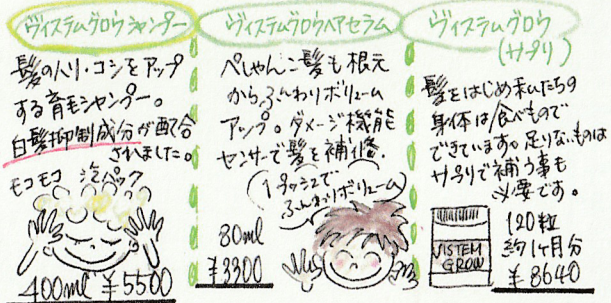 ヴィステムグロウシャンプー
髪のハリ・コシをアップ
する育毛シャンプー。
白髪抑制成分が配合
されました。
モコモコ 泡パック
400ml ¥5500
ヴィステムグロウヘアセラム
ぺしゃんこ髪も根元
からふんわりボリューム
アップ。ダメージ機能
センサーで髪を補修。
(1プッシュで
ふんわりボリューム)
80ml
¥3300
ヴィステムグロウ
(サプリ)
髪をはじめ私たちの
身体は食べもので
できています。足りないものは
サプリで補う事も
必要です。
VISTEM
GROW
120粒
約1ヶ月分
¥8640